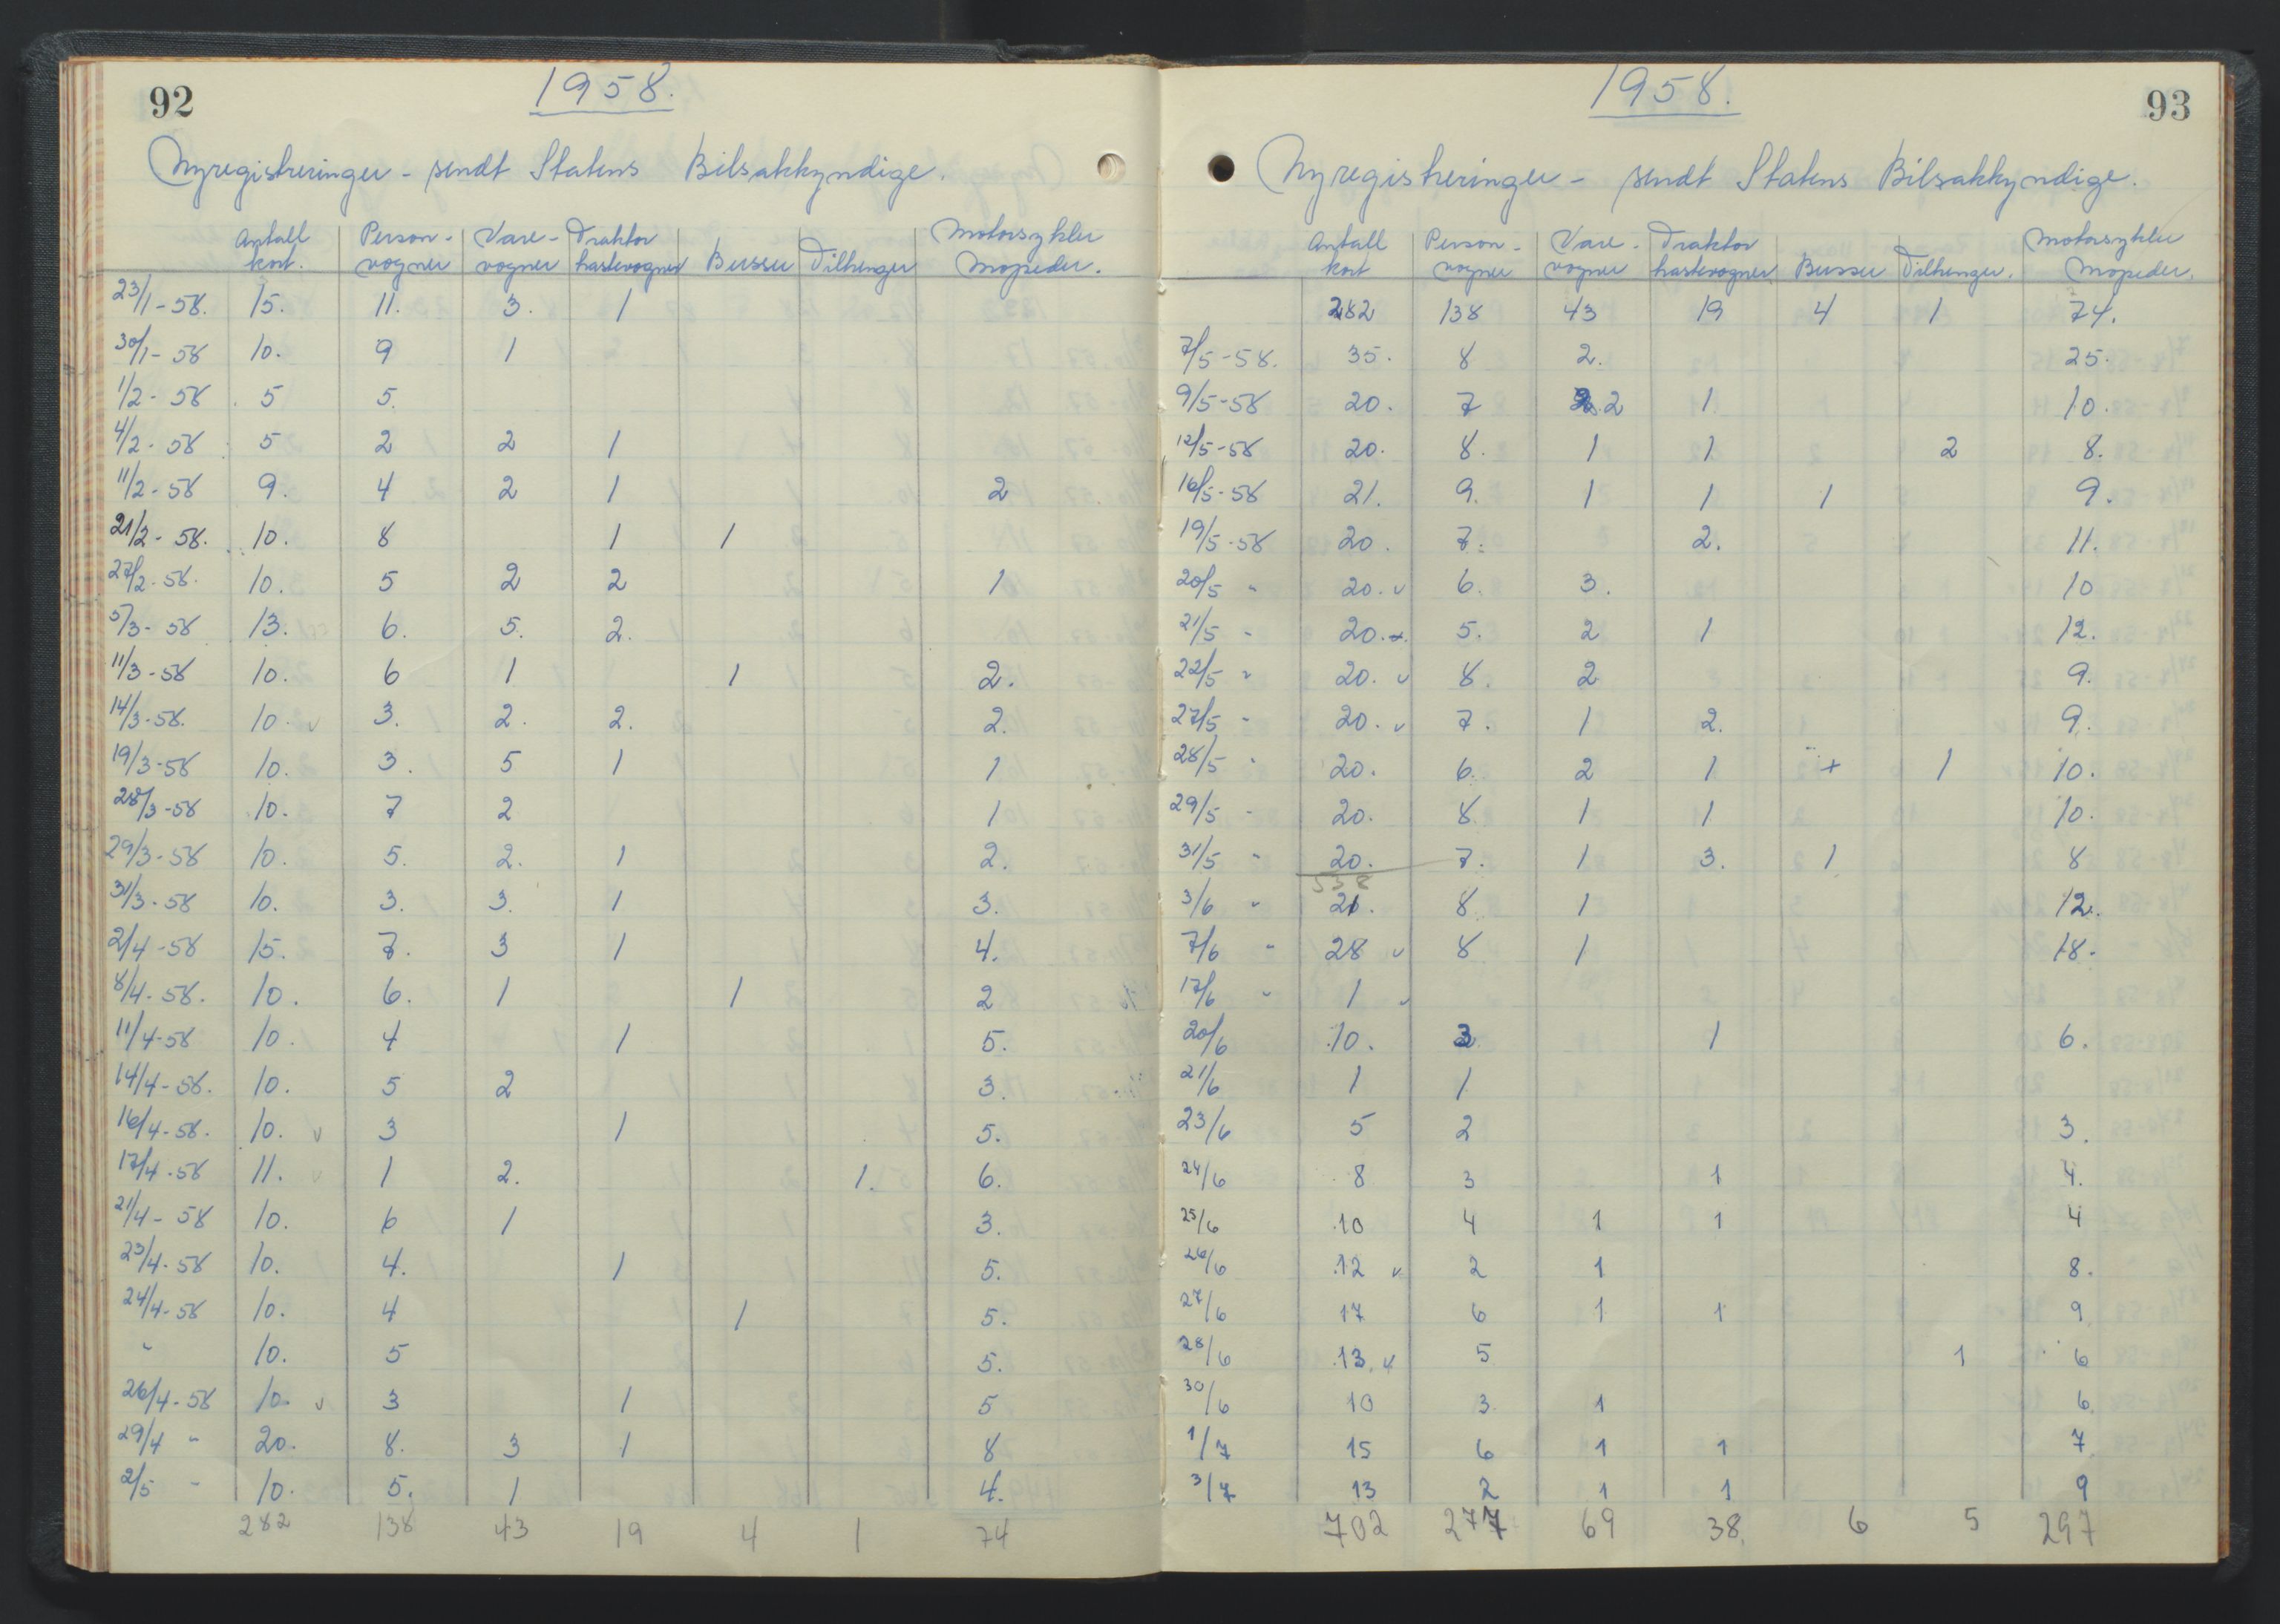 92
1958.
Nyregistreringer - sendt Statens Bilsakkyndige.
Antall kort. Person- vogner Vare- vogner Traktor hastevogner Busser Tilhenger Motorsykler Mopeder.
23/1-58. 15. 11. 3. 1
30/1-58 10. 9 1
1/2-58 5 5.
4/2-58 5 2 2 1
11/2-58 9. 4 2 1 2
21/2-58. 10. 8 1 1
27/2-58. 10. 5 2 2 1
5/3-58 13. 6. 5. 2.
11/3-58 10. 6 1 1 2.
14/3-58. 10. v 3. 2. 2. 2.
19/3-58 10. 3. 5 1 1
28/3-58 10. 7 2 1
29/3-58 10. 5. 2. 1 2.
31/3-58 10. 3. 3. 1 3.
2/4-58 15. 7. 3 1 4.
8/4-58. 10. 6. 1 1 2
11/4-58 10. 4 1 5.
14/4-58. 10. 5 2 3.
16/4-58. 10. v 3 1 5.
17/4-58 11. v 1 2. 1. 6.
21/4-58 10. 6 1 3.
23/4-58 10. 4. 1 5.
24/4-58 10. 4 1 5.
" 10. 5 5.
26/4-58 10. v 3 1 5
29/4 " 20. 8. 3 1 8
2/5 " 10. 5. 1 4.
282 138 43 19 4 1 74
93
1958.
Nyregistreringer - sendt Statens Bilsakkyndige.
Antall kort Person- vogner Vare- vogner Traktor hastevogner Busser Tilhenger. Motorsykler Mopeder.
282 138 43 19 4 1 74.
7/5-58. 35. 8 2. 25.
9/5-58 20. 7 2 1 10.
12/5-58 20. 8. 1 1 2 8.
16/5-58 21. 9. 1 1 1 9.
19/5-58 20. 7. 2. 11.
20/5 " 20. v 6. 3. 10
21/5 " 20. 5. 2 1 12.
22/5 " 20. v 8. 2 9.
27/5 " 20. v 7. 1 2. 9.
28/5 " 20. 6. 2 1 + 1 10.
29/5 " 20. 8. 1 1 10.
31/5 " 20. 7. 1 3. 1 8
538
3/6 " 21. 8 1 12.
7/6 " 28 v 8 1 18.
17/6 " 1 v
20/6 10. 3 1 6.
21/6 1 1
23/6 5 2 3.
24/6 8 3 1 4.
25/6 10 4 1 1 4
26/6 12 v 2 1 8.
27/6 17 6 1 1 9
28/6 13. v 5 1 6
30/6 10 3 1 6.
1/7 15 6 1 1 7
3/7 13 2 1 1 9
702 277 69 38. 6 5 297